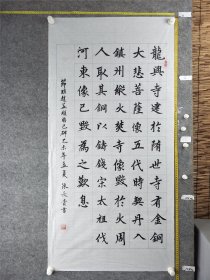 龍興寺建於隋世寺有金銅
大悲菩薩像五代時契丹入
鎮州縱火焚寺像毀於火周
人取其銅以鑄錢宋太祖伐
河東像已毀為之歎息
節臨趙孟頫胆巴碑乙未年孟夏 張書